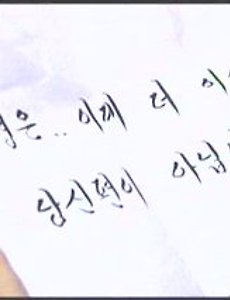 은.. 이제 더 이
당신편이 아닙